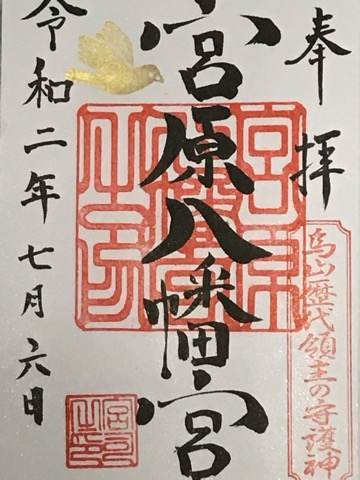 奉拝
烏山歴代領主の守護神
宮原八幡宮
令和二年七月六日
宮原八幡宮之印
宮司之印